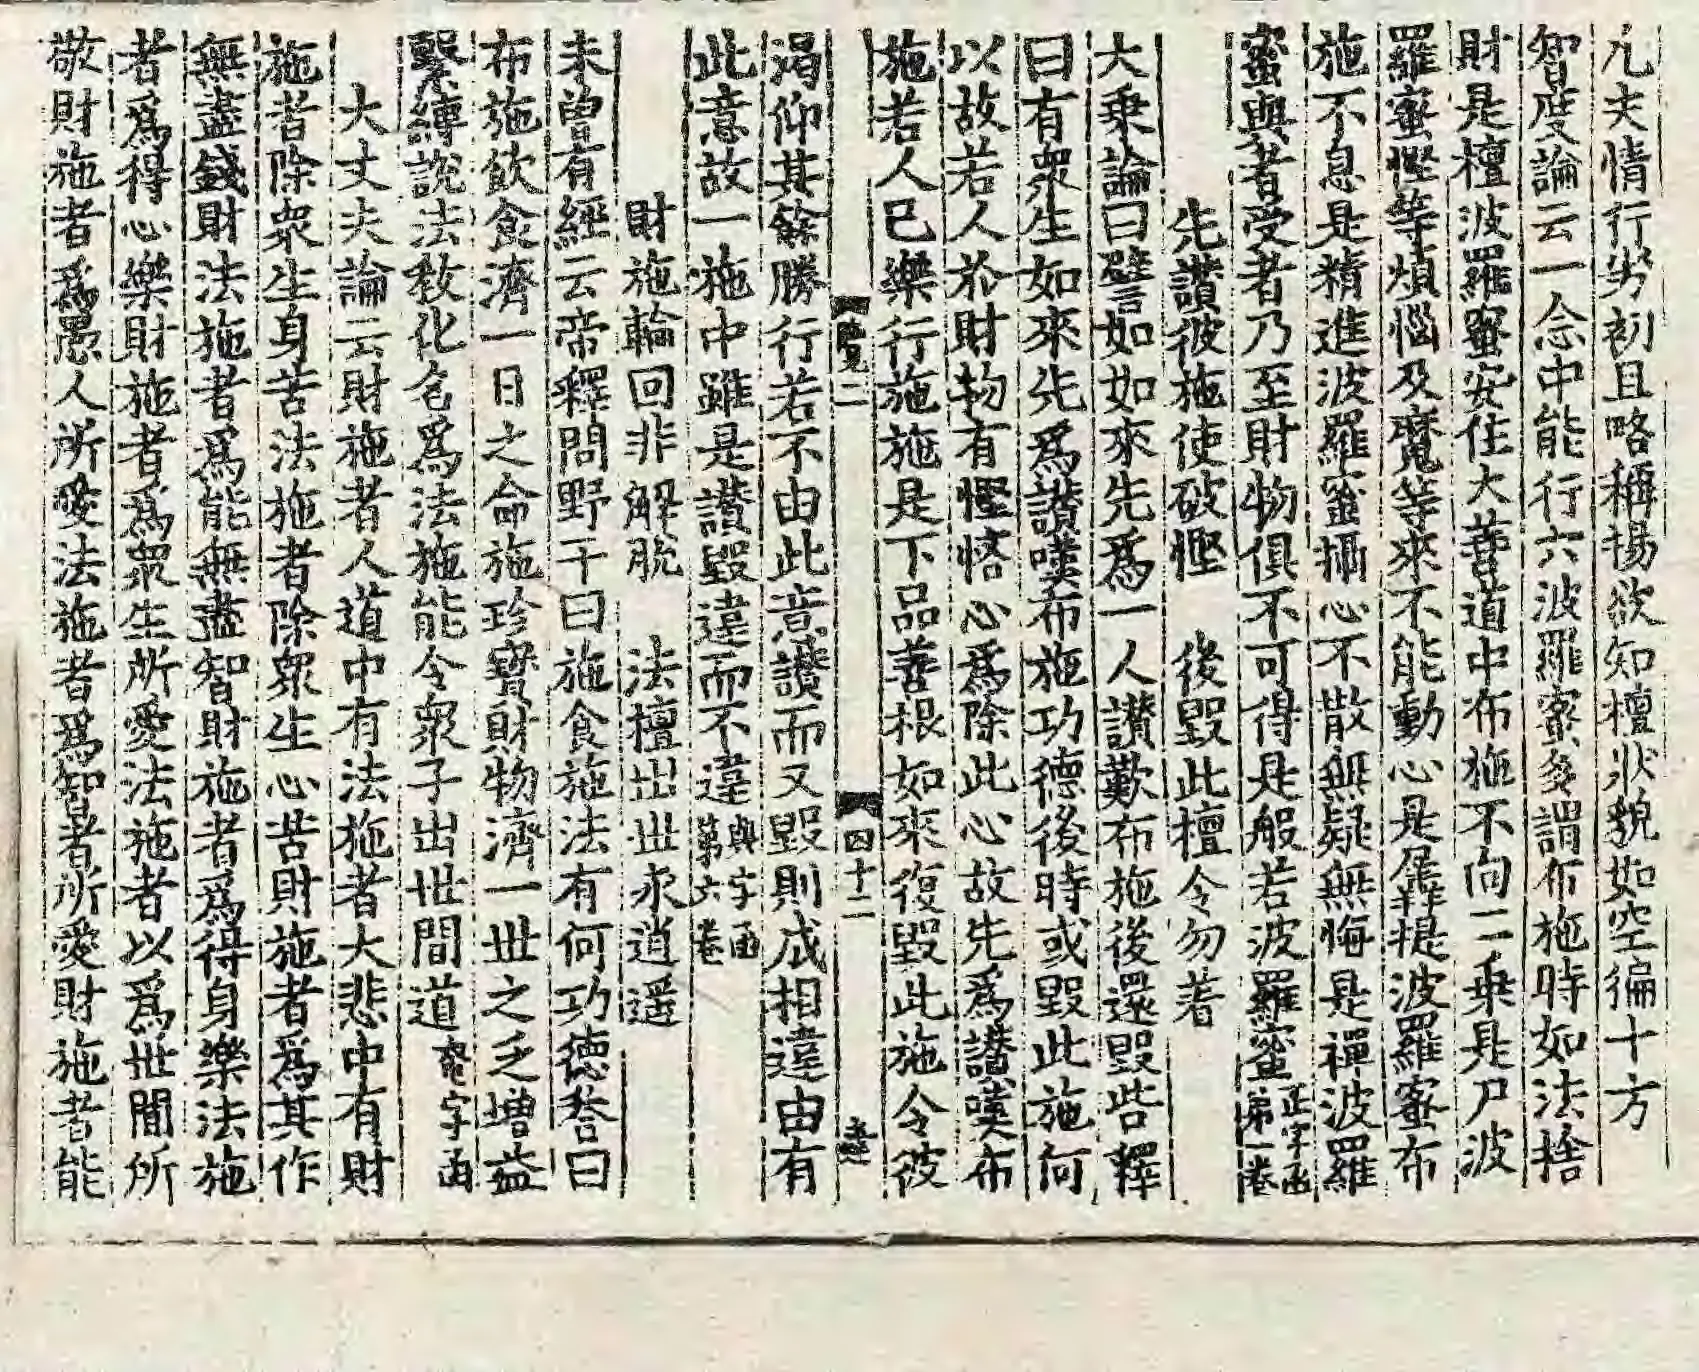 凢夫情行劣初且略稱揚欲知檀狀貌如空徧十方
智度論云一念中能行六波羅蜜多謂布施時如法捨
財是檀波羅蜜安住大菩道中布施不向二乗是尸波
羅蜜慳等煩惱及魔等來不能動心是羼提波羅蜜布
施不息是精進波羅蜜攝心不散無疑無悔是禪波羅
蜜與者受者乃至財物俱不可得是般若波羅蜜正字函第一卷
先讃彼施使破慳 後毀此檀令勿着
大乗論曰譬如如來先爲一人讃歎布施後還毀呰釋
曰有衆生如來先爲讃嘆布施功德後時或毀此施何
以故若人於財物有慳悋心爲除此心故先爲讃嘆布
施若人已樂行施施是下品善根如來復毀此施令彼
二 四十二
渴仰其餘勝行若不由此意讃而又毀則成相違由有
此意故一施中雖是讃毀違而不違與字函第六卷
財施輪回非解脫 法檀出世永逍遥
未曾有經云帝釋問野干曰施食施法有何功德答曰
布施飲食濟一日之命施珍寶財物濟一世之乏增益
繫縛說法敎化名爲法施能令衆子出世間道 字函
大丈夫論云財施者人道中有法施者大悲中有財
施者除衆生身苦法施者除衆生心苦財施者爲其作
無盡錢財法施者爲能無盡智財施者爲得身樂法施
者爲得心樂財施者爲衆生所愛法施者以爲世間所
敬財施者爲愚人所愛法施者爲智者所愛財施者能